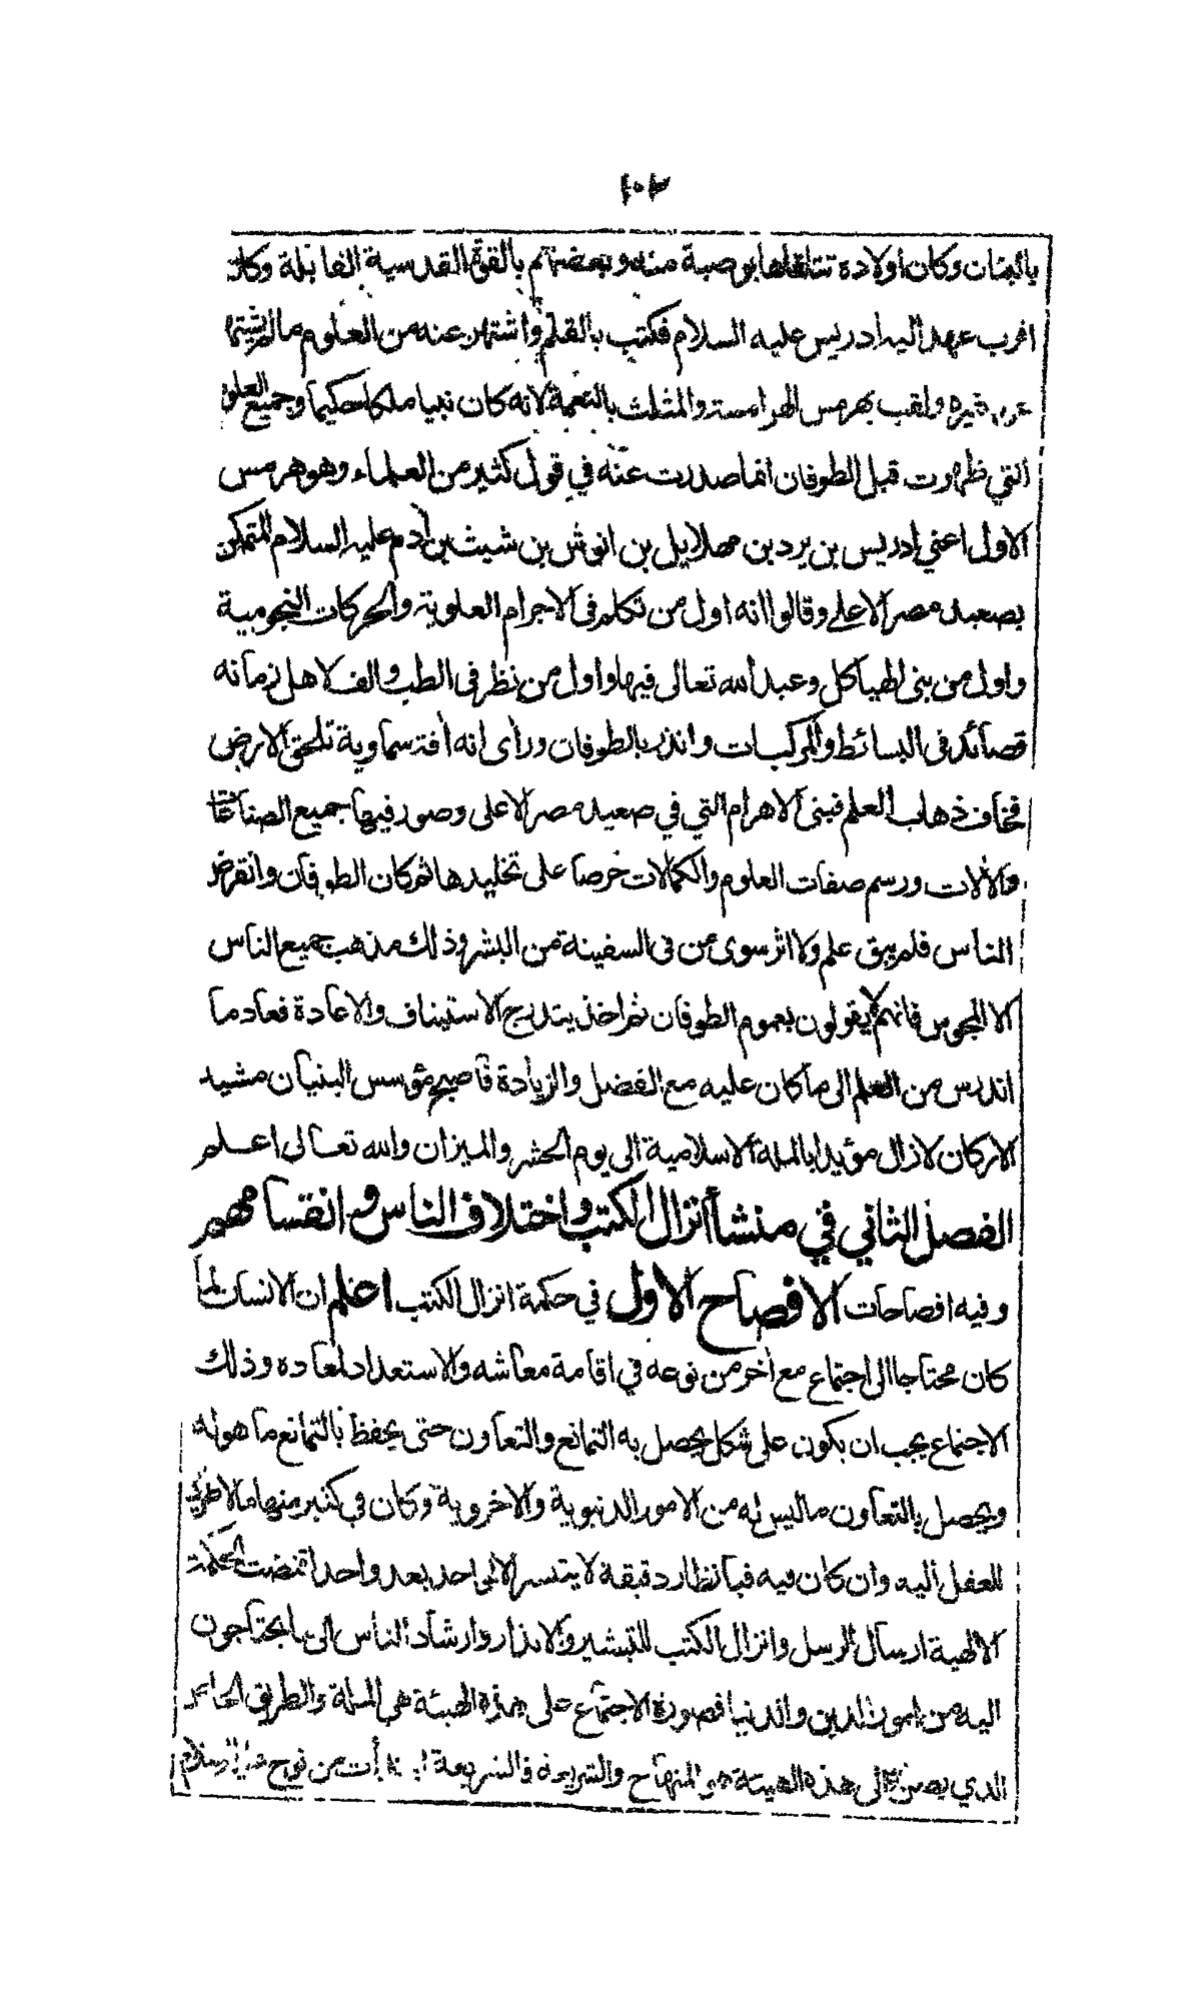 ١٠٣
بالبنان وكان اولاده تتلقاها بوصية منه وبعضهم بالقوة القدسية القابلة وكان
اقرب عهد اليه ادريس عليه السلام فكتب بالقلم واشتهر عنه من العلوم ما لم يشتهر
عن غيره ولقب بهرمس الهرامسة والمثلث بالنعمة لانه كان نبيا ملكا حكيما وجميع العلوم
التي ظهرت قبل الطوفان انما صدرت عنه في قول كثير من العلماء وهو هرمس
الاول اعني ادريس بن يرد بن مهلاييل بن انوش بن شيث بن آدم عليه السلام المتمكن
بصعيد مصر الاعلى وقالوا انه اول من تكلم في الاجرام العلوية والحركات النجومية
واول من بنى الهياكل وعبد الله تعالى فيها واول من نظر في الطب والف لاهل زمانه
قصائد في البسائط والمركبات وانذر بالطوفان ورأى انه آفة سماوية تلحق الارض
فخاف ذهاب العلم فبنى الاهرام التي في صعيد مصر الاعلى وصور فيها جميع الصناعات
والآلات ورسم صفات العلوم والكمالات حرصا على تخليدها ثم كان الطوفان وانقرض
الناس فلم يبق علم ولا اثر سوى من في السفينة من البشر وذلك مذهب جميع الناس
الا المجوس فانهم لا يقولون بعموم الطوفان ثم اخذ يتدرج الاستيناف والاعادة فعاد ما
اندرس من العلم الى ما كان عليه مع الفضل والزيادة فاصبح مؤسس البنيان مشيد
الاركان لا زال مؤيدا بالملة الاسلامية الى يوم الحشر والميزان والله تعالى اعلم
الفصل الثاني في منشأ انزال الكتب واختلاف الناس وانقسامهم
وفيه افصاحات الافصاح الاول في حكمة انزال الكتب اعلم ان الانسان لما
كان محتاجا الى اجتماع مع آخر من نوعه في اقامة معاشه والاستعداد لمعاده وذلك
الاجتماع يجب ان يكون على شكل يحصل به التمانع والتعاون حتى يحفظ بالتمانع ما هو له
ويحصل بالتعاون ما ليس له من الامور الدنيوية والاخروية وكان في كثير منها ما لا طريق
للعقل اليه وان كان فيه فبانظار دقيقة لا يتيسر الا لواحد بعد واحد اقتضت الحكمة
الالهية ارسال الرسل وانزال الكتب للتبشير والانذار وارشاد الناس الى ما يحتاجون
اليه من امور الدين والدنيا فصورة الاجتماع على هذه الهيئة هي الملة والطريق الخاص
الذي يصل الى هذه الهيئة هو المنهاج والشرعة فالشريعة من نوح عليه السلام